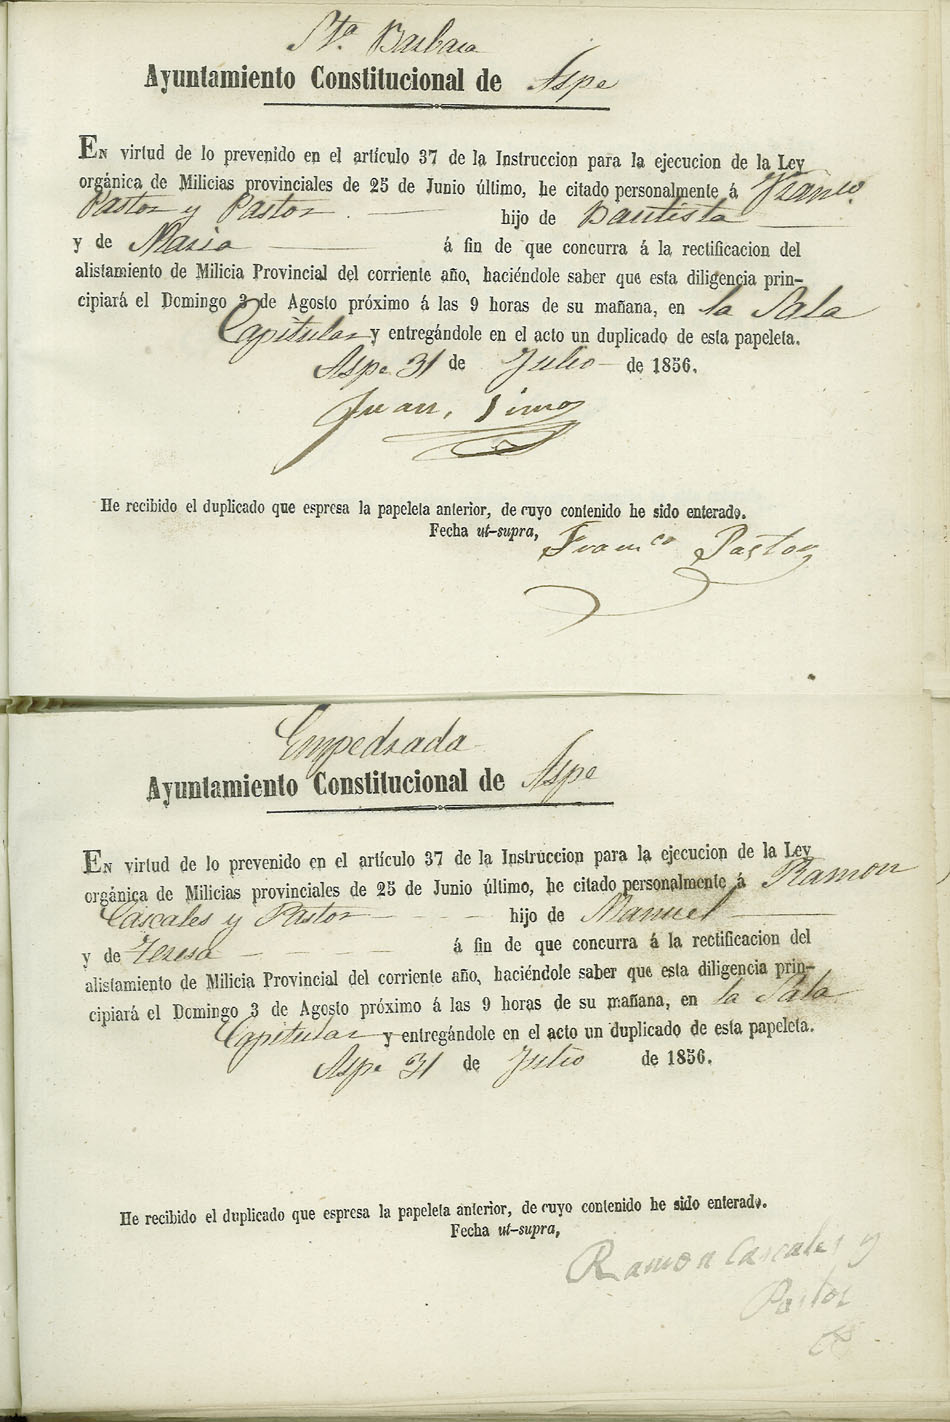 Sta. Barbara
Ayuntamiento Constitucional de Aspe
En virtud de lo prevenido en el artículo 37 de la Instruccion para la ejecucion de la Ley
orgánica de Milicias provinciales de 25 de Junio último, he citado personalmente á Franco.
Pastor y Pastor hijo de Bautista
y de Maria á fin de que concurra á la rectificacion del
alistamiento de Milicia Provincial del corriente año, haciéndole saber que esta diligencia prin-
cipiará el Domingo 3 de Agosto próximo á las 9 horas de su mañana, en la Sala
Capitular y entregándole en el acto un duplicado de esta papeleta.
Aspe 31 de Julio de 1856.
Juan
He recibido el duplicado que espresa la papeleta anterior, de cuyo contenido he sido enterado.
Fecha ut-supra,
Franco Pastor
Empedrada
Ayuntamiento Constitucional de Aspe
En virtud de lo prevenido en el artículo 37 de la Instruccion para la ejecucion de la Ley
orgánica de Milicias provinciales de 25 de Junio último, he citado personalmente á Ramon
Cascales y Pastor hijo de Manuel
y de Teresa á fin de que concurra á la rectificacion del
alistamiento de Milicia Provincial del corriente año, haciéndole saber que esta diligencia prin-
cipiará el Domingo 3 de Agosto próximo á las 9 horas de su mañana, en la Sala
Capitular y entregándole en el acto un duplicado de esta papeleta.
Aspe 31 de Julio de 1856.
He recibido el duplicado que espresa la papeleta anterior, de cuyo contenido he sido enterado.
Fecha ut-supra,
Ramon Cascales y
Pastor